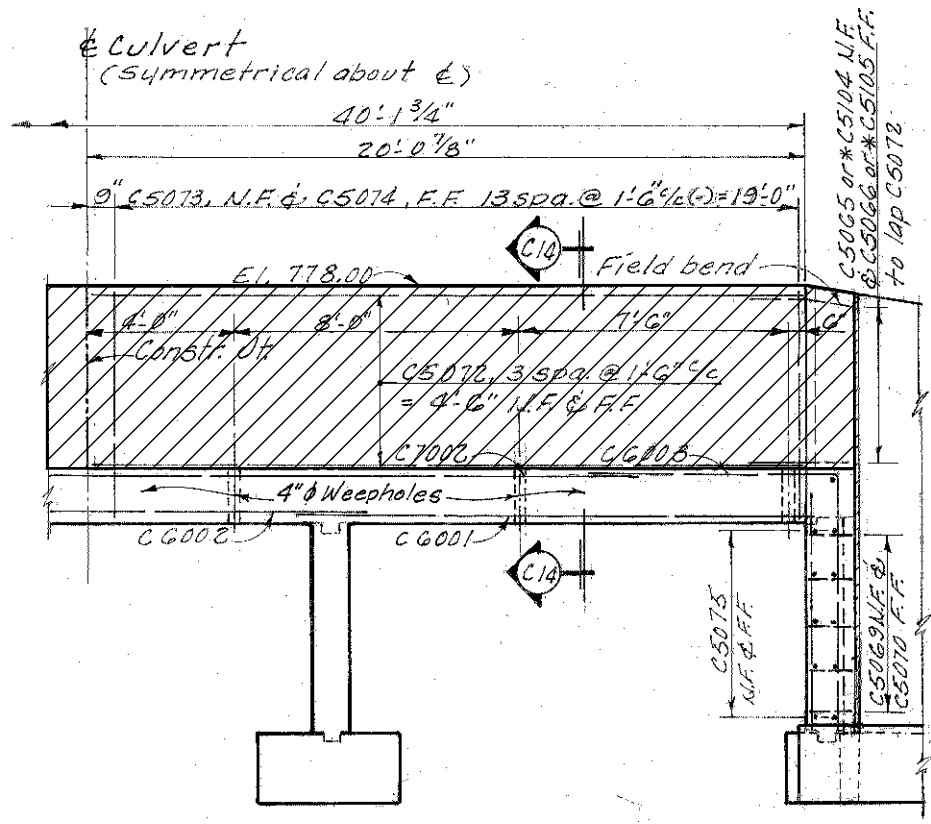 ℄ Culvert
(Symmetrical about ℄)
40'-1 3/4"
20'-0 7/8"
9" C5073, N.F. & C5074, F.F. 13 spa. @ 1'-6" c/c (-) = 19'-0"
C14
El. 778.00
Field bend
C5065 or *C5104 N.F.
& C5066 or *C5105 F.F.
to lap C5072
4'-0"
8'-0"
7'-6"
6"
Constr. Jt.
C5072, 3 spa. @ 1'-6" c/c
= 4'-6" N.F. & F.F.
C7002
C6003
4" ϕ Weepholes
C6002
C6001
C14
C5075
N.F. & F.F.
C5069 N.F. &
C5070 F.F.